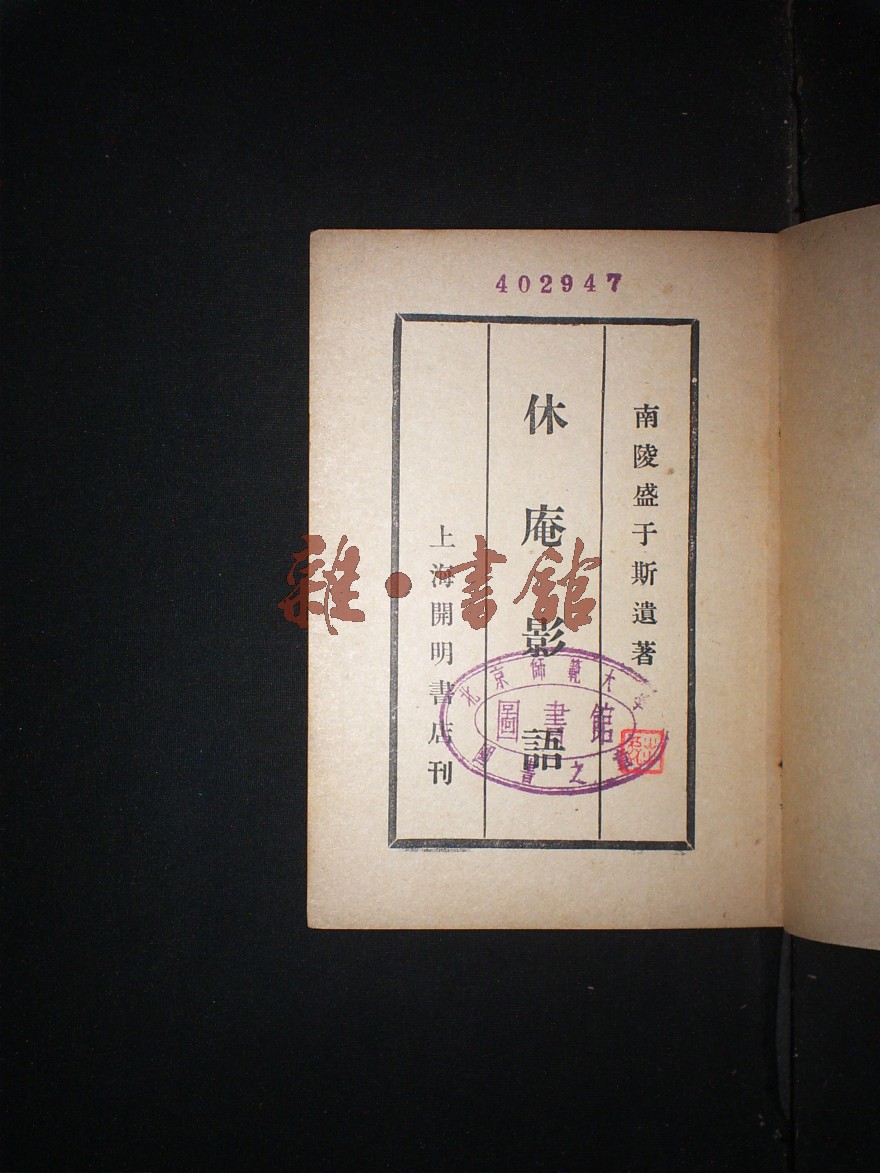 402947
南陵盛于斯遺著
休庵影語
上海開明書店刊
雜·書館
北京師範大學
圖書館
圖書之章